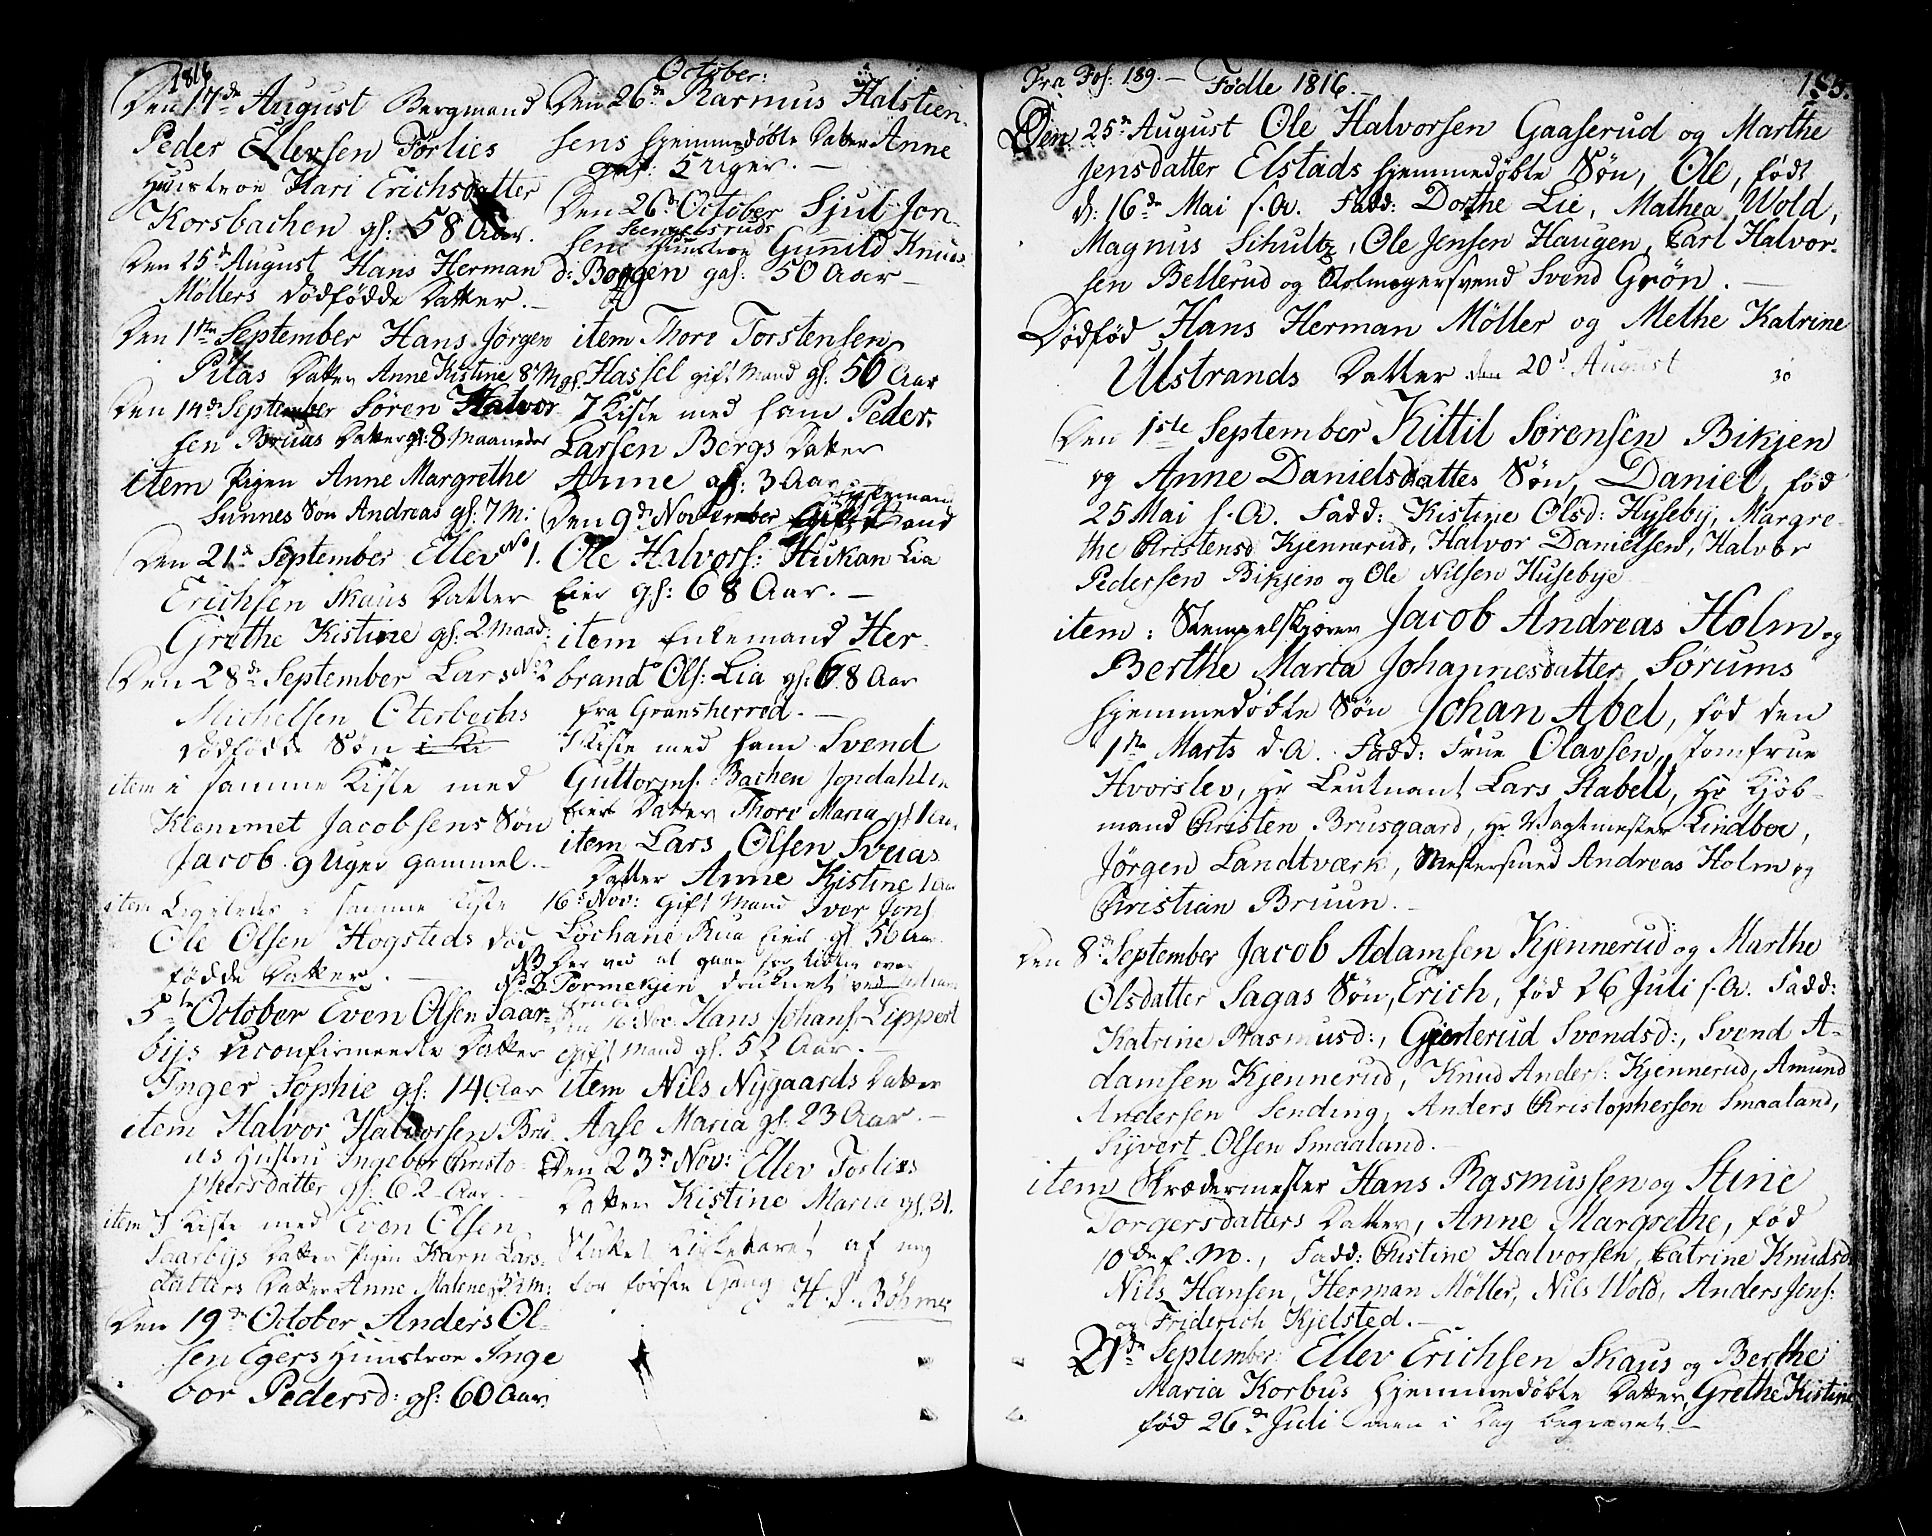 1816
Den 17de August Bergmand
Peder Ellevsen Förlies
Huustroe Kari Erichsdatter
Korsbachen gs: 58 Aar.
Den 25de August Hans Herman
Möllers dödfödde Datter.
Den 1ste September Hans Jørgen
Pilas Datter Anne Kistine 8 M gs.
Den 14de September Sören Halvor
sen Bruus Datter gs: 8. Maaneder
item Pigen Anne Margrethe
Sunnes Søn Andreas gs: 7 M:
Den 21de September Ellev No 1.
Erichsen Skaus Datter
Grethe Kistine gs: 2 Maad:
Den 28de September Lars No 2
Michelsen Oterbechs
dödfödde Søn
item i samme Kiste med
Klemmet Jacobsens Søn
Jacob 9 Uger gammel.
item Ligeledes i samme Kiste
Ole Olsen Hogsteds død
fødde Datter.
5te October Even Olsen Saar-
byes uconfirmerede Datter
Inger Sophie gs: 14 Aar
item Halvor Halvorsen Bru
us Hustru Ingebor Christo
phersdatter gs: 62 Aar
item I Kiste med Even Olsen
Saarbys Datter Pigen Karn Lars-
datters Datter Anne Malene
Den 19de October Anders Ol-
sen Egers Huustroe Inge
bor Pedersd: gs: 60 Aar.
October:
Den 26de Rasmus Halstien-
sens hjemmedøbte Datter Anne
gs: 5 Uger.
Den 26de October Sjul Jon-
sens Huustroe Gunild Knuds
d: Boggen gs: 50 Aar
item Thore Torstensen
Hassel gift Mand gs: 50 Aar
I Kiste med ham Peder
Larsen Bergs Datter
Anne gs: 3 Aar
Den 9de November
Ole Halvors: Hukan Lia
Eier gs: 68 Aar.
item Enkemand Her-
brand Ols: Lia gs: 68 Aar
fra Gransherred.
I Kiste med ham Svend
Guttorms: Bachen Jondahls
Eiers Datter Thore Maria gs 1 Aar
item Lars Olsen Sveias
Datter Anne Kistine 1 Aar
16de Nov: Gift Mand Iver Jons
Lochane Rua Eier gs 50 Aar
NB Der ved at gaae
druknet ved
Den 16 Nov: Hans Johans: Lippert
gift Mand gs: 52 Aar.
item Nils Nygaards Datter
Aase Maria gs: 23 Aar.
Den 23de Nov: Ellev Forlies
Datter Kistine Maria gs. 31.
Sluttet Kirkekaret af mig
for første Gang H. J. Böhmer
Fra Fol: 189. Födte 1816.
Den 25de August Ole Halvorsen Gaaserud og Marthe
Jensdatter Elstads hjemmedøbte Søn, Ole, födt
d: 16de Mai s. A. Fadd: Dorthe Lie, Mathea Wold,
Magnus Schultz, Ole Jensen Haugen, Carl Halvor-
sen Bellerud og Polmagersvend Svend Grøn.
Dödfød Hans Herman Möller og Methe Katrine
Ulstrands Datter den 20d August
30
Den 1ste September Kittil Sörensen Bikjen
og Anne Danielsdatters Søn, Daniel, fød
25 Mai s. A. Fadd: Kistine Olsd: Hyseby, Margre-
the Christensd Kjennerud, Halvor Danielsen, Halvor
Pedersen Bikjen og Ole Nilsen Husebye
item: Stempelskjærer Jacob Andreas Holm og
Berthe Maria Johannesdatter Sörums
hjemmedøbte Søn Johan Abel, fød den
1ste Marts d. A. Fadd: Frue Olavsen, Jomfrue
Hvorslev, Hr Leutnant Lars Stabell, Hr Kjöb-
mand Christen Brusgaard, Hr Vagtmester Lindboe,
Jörgen Landtværk, Mestersmed Andreas Holm og
Christian Bruun.
Den 8de September Jacob Adamsen Kjennerud og Marthe
Olsdatter Sagas Søn, Erich, fød 26 Juli s. A. Fadd:
Katrine Rasmusd:, Gjerterud Svendsd:, Svend A-
damsen Kjennerud, Knud Anders: Kjennerud, Amund
Andersen Sending, Anders Christophersen Smaaland,
Syvert Olsen Smaaland.
item Skrædermester Hans Rasmussen og Stine
Torgersdatters Datter, Anne Margrethe, fød
10de f. M., Fadd: Christine Halvorsen, Catrine Knudsd
Nils Hansen, Herman Möller, Nils Wold, Anders Jens:
og Friderich Kjelsted.
21de September Ellev Erichsen Skaus og Berthe
Maria Korbus hjemmedøbte Datter, Grethe Kistine
fød 26de Juli men i Dag begravet.